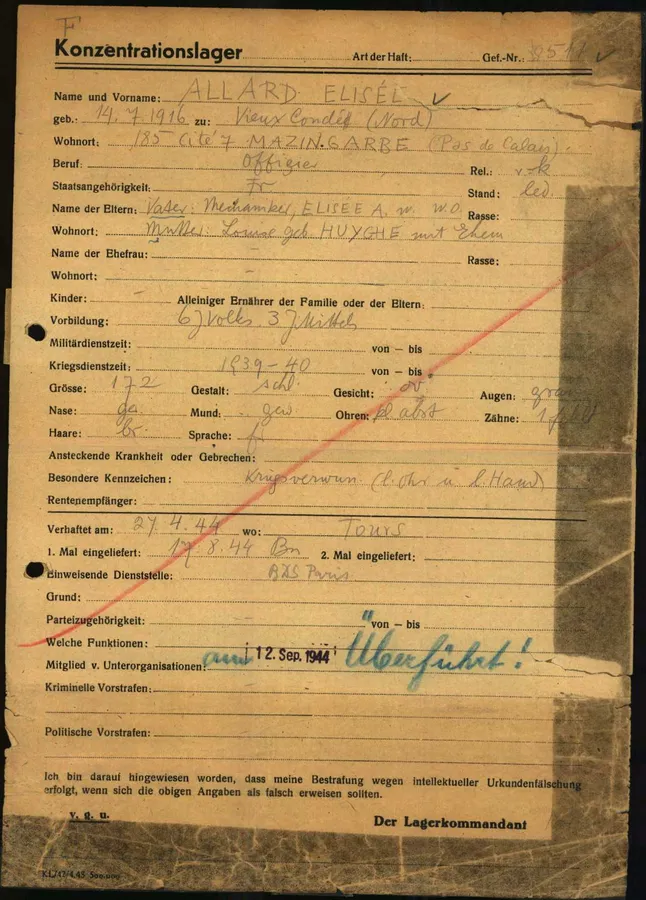 F
Konzentrationslager Art der Haft: Gef.-Nr.:
Name und Vorname: ALLARD ELISÉE
geb.: 14.7.1916 zu: Vieux Condé (Nord)
Wohnort: 185 Cité 7 MAZINGARBE (Pas de Calais).
Beruf: Offizier Rel.: v.-k
Staatsangehörigkeit: Fr Stand: led.
Name der Eltern: Vater: ELISÉE A. w. w.O. Rasse:
Wohnort: Mutter: Louise geb. HUYGHE mit Ehem
Name der Ehefrau: Rasse:
Wohnort: -
Kinder: - Alleiniger Ernährer der Familie oder der Eltern:
Vorbildung: 6 J Volks 3 J Mittels
Militärdienstzeit: von — bis
Kriegsdienstzeit: 1939-40 von — bis
Grösse: 172 Gestalt: schl. Gesicht: ov. Augen: grau
Nase: ga. Mund: gew Ohren: kl. abst Zähne: 1
Haare: br. Sprache: f
Ansteckende Krankheit oder Gebrechen:
Besondere Kennzeichen: Kriegsverwun. (l. Ohr u l. Hand)
Rentenempfänger:
Verhaftet am: 27.4.44 wo: Tours
1. Mal eingeliefert: 17.8.44 Bu 2. Mal eingeliefert:
Einweisende Dienststelle: BDS Paris
Grund:
Parteizugehörigkeit: von — bis
Welche Funktionen:
Mitglied v. Unterorganisationen: am 12. Sep. 1944 Überführt!
Kriminelle Vorstrafen:
Politische Vorstrafen:
Ich bin darauf hingewiesen worden, dass meine Bestrafung wegen intellektueller Urkundenfälschung
erfolgt, wenn sich die obigen Angaben als falsch erweisen sollten.
v. g. u. Der Lagerkommandant